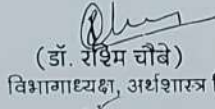 (डॉ. रश्मि चौबे)
विभागाध्यक्षा, अर्थशास्त्र